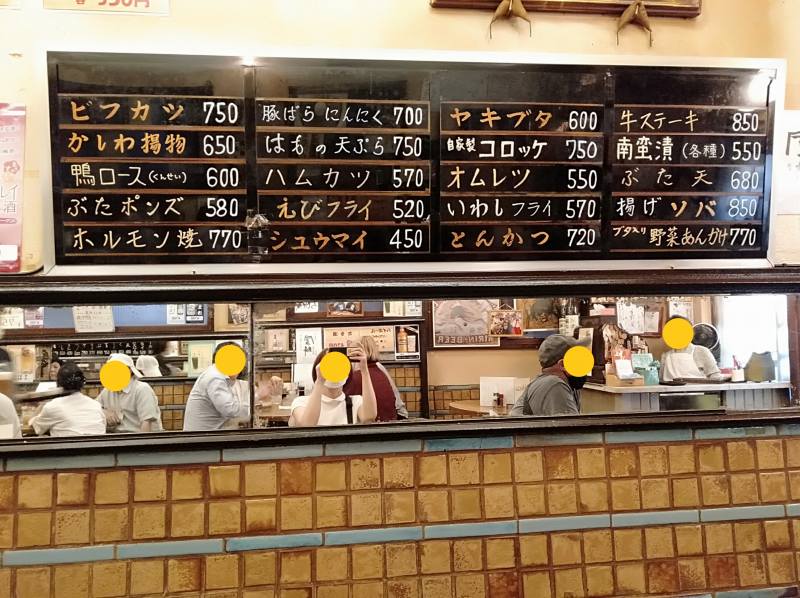 ビフカツ 750
かしわ揚物 650
鴨ロース(くんせい) 600
ぶたポンズ 580
ホルモン焼 770
豚ばら にんにく 700
はもの天ぷら 750
ハムカツ 570
えびフライ 520
シュウマイ 450
ヤキブタ 600
自家製 コロッケ 750
オムレツ 550
いわしフライ 570
とんかつ 720
牛ステーキ 850
南蛮漬(各種) 550
ぶた天 680
揚げソバ 850
ブタ入り 野菜あんかけ 770
KIRIN-BEER